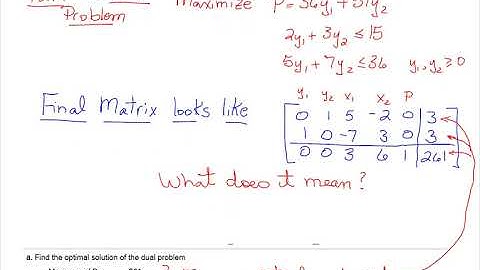 Problem Maximize P = 36y₁ + 51y₂
2y₁ + 3y₂ ≤ 15
5y₁ + 7y₂ ≤ 36 y₁, y₂ ≥ 0
Final Matrix looks like
y₁ y₂ x₁ x₂ P
0 1 5 -2 0 3
1 0 -7 3 0 3
0 0 3 6 1 261
What does it mean?
a. Find the optimal solution of the dual problem